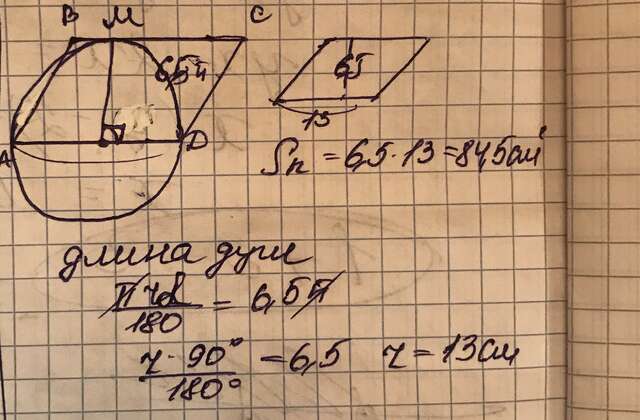 B M C
6,5π
A D
65
13
Sп = 6,5·13 = 84,5 см²
длина дуги
πrα/180 = 6,5π
r·90°/180° = 6,5 r = 13 см